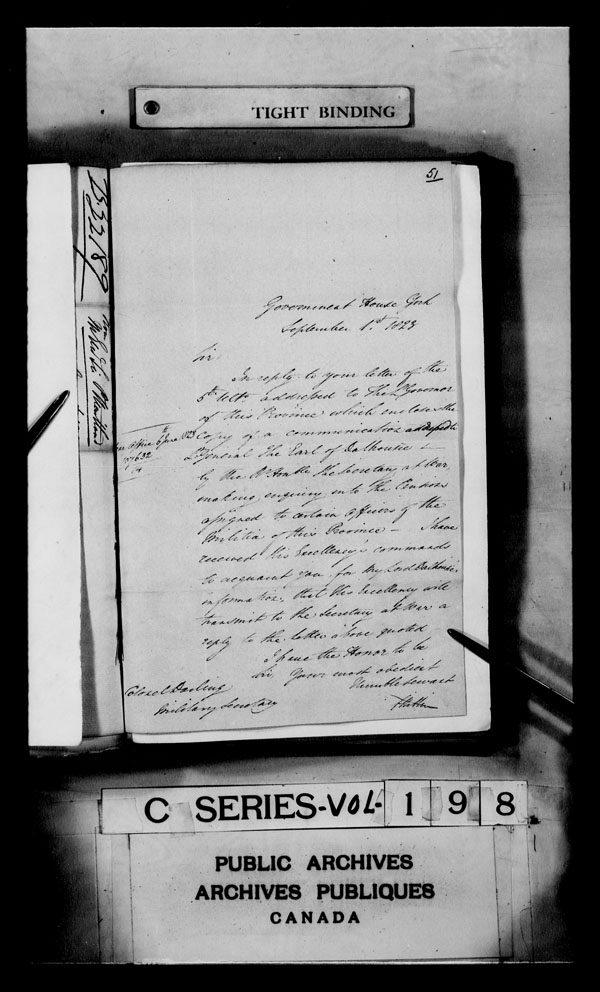 TIGHT BINDING
51
Government House York
September 1st 1823
Sir
In reply to your letter of the
5th Ulto. addressed to the Lt. Governor
of this Province which encloses the
Copy of a communication addressed to
Lt General The Earl of Dalhousie
by the Rt. Honble the Secretary at War
making enquiry into the Pensions
assigned to certain Officers of the
Militia of this Province – I have
received His Excellency's commands
to acquaint you for My Lord Dalhousie's
information, that His Excellency will
transmit to the Secretary at War a
reply to the letter above quoted
I have the Honor to be
Sir, Your most obedient
Humble Servant
Colonel Darling
Military Secretary
War Office 6th June 1823
C SERIES-VOL-198
PUBLIC ARCHIVES
ARCHIVES PUBLIQUES
CANADA